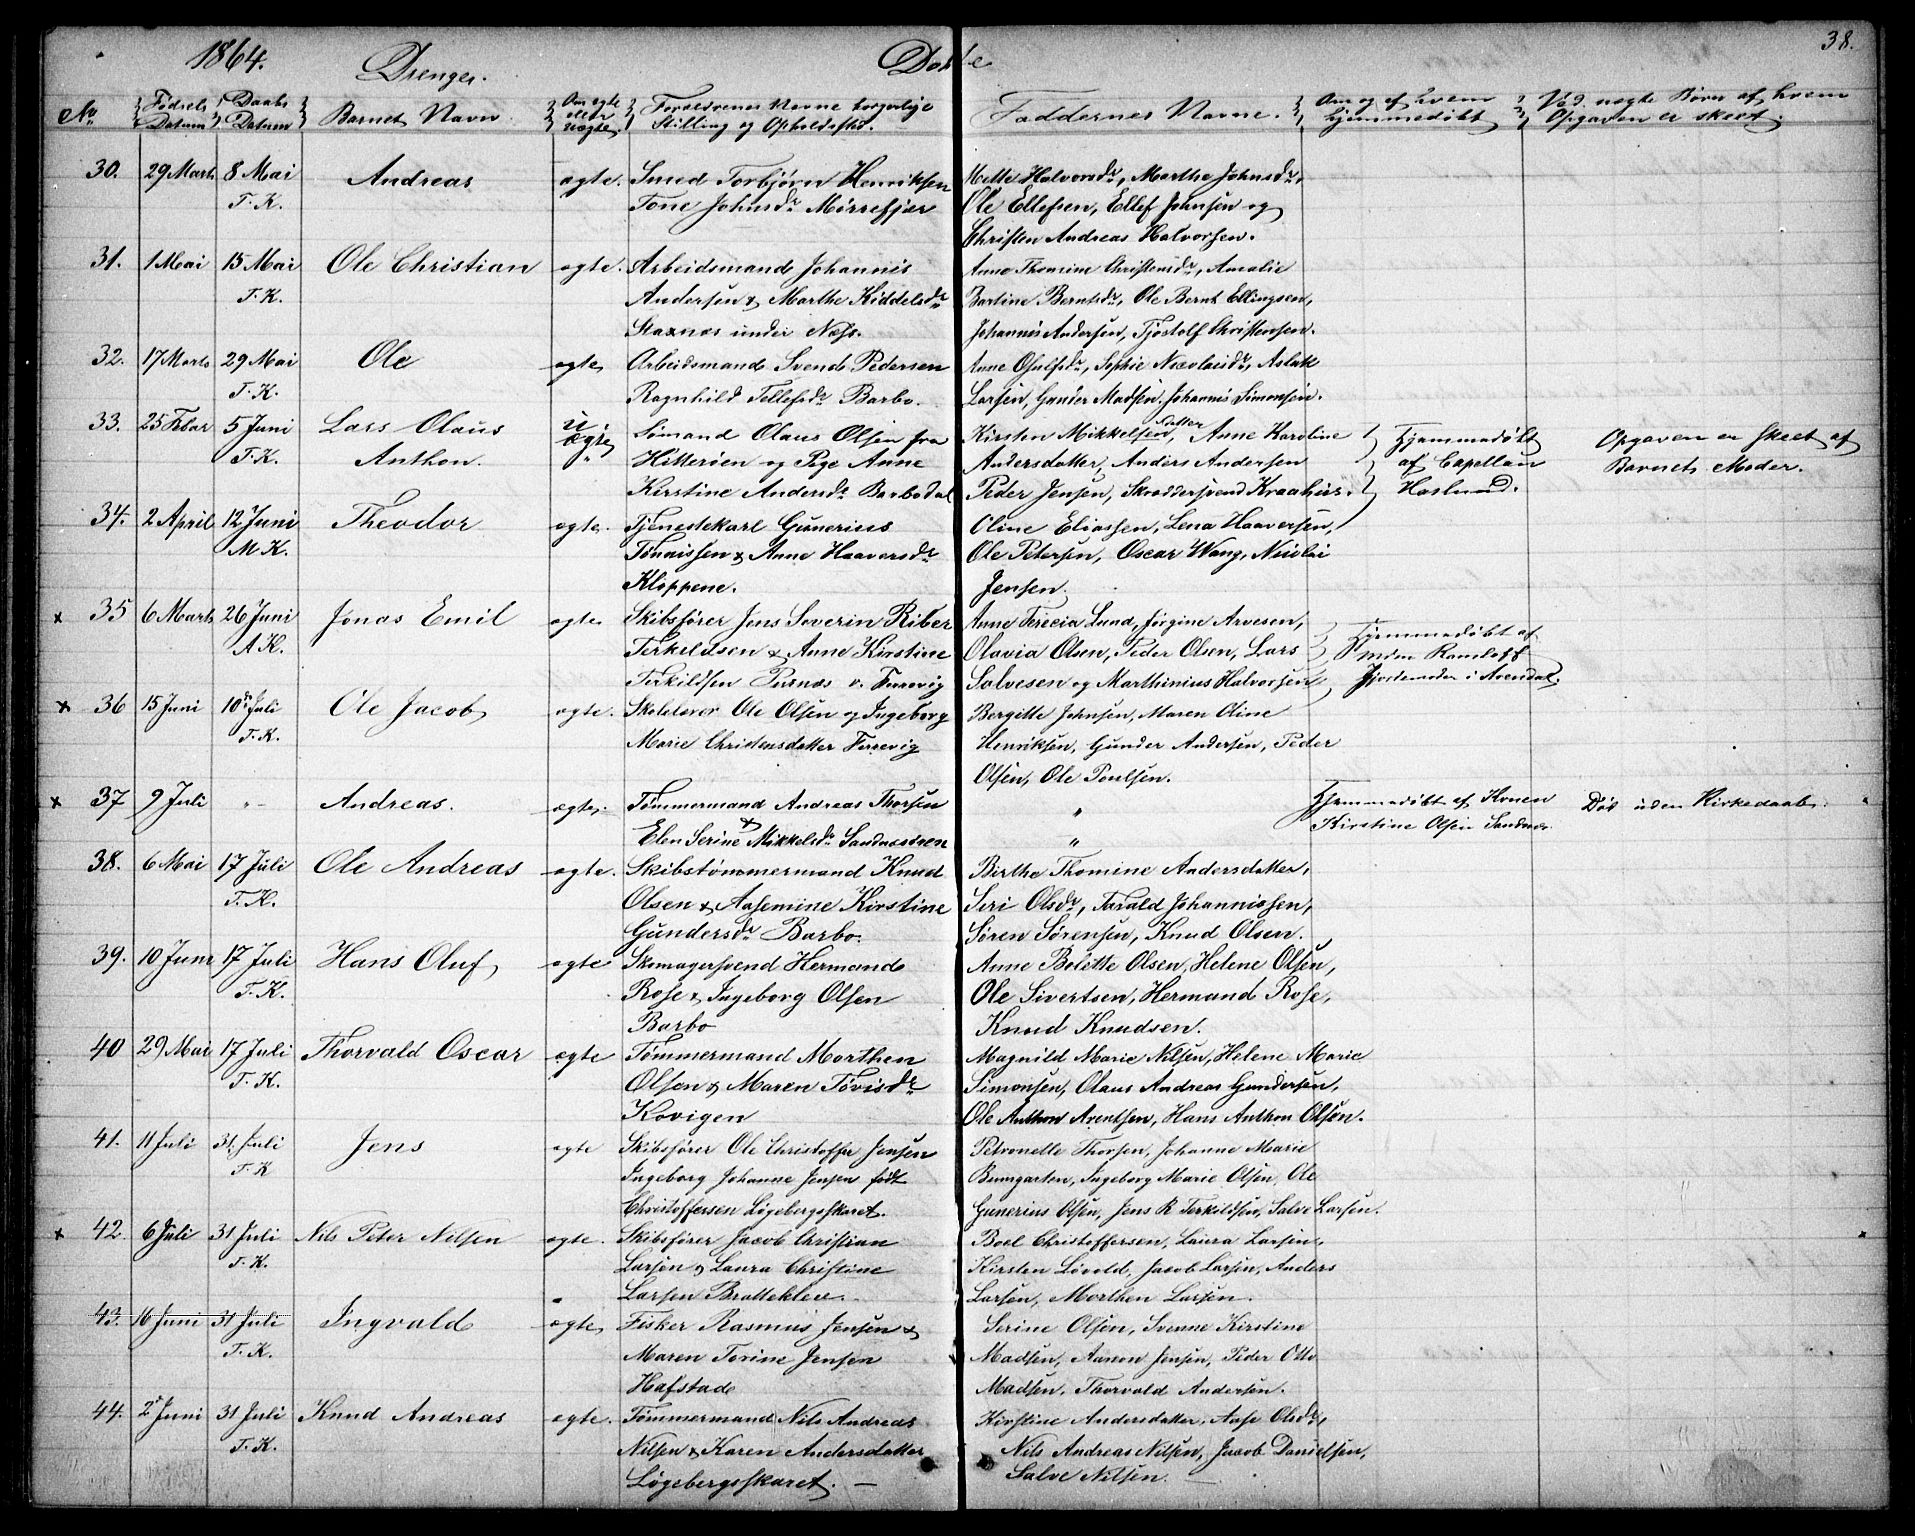 1864. Drenger. Døbte 38.
No Fødsels Datum Daabs Datum Barnets Navn Om ægte eller uægte. Forældrenes Navne borgerlige Stilling og Opholdssted. Faddernes Navne. Om og af hvem hjemmedøbt Ved uægte Børn af hvem Opgaven er skeet.
30. 29 Marts 8 Mai Andreas ægte. Smed Torbjørn Henriksen Mette Halvorsdr, Marthe Johnsdr,
T. K. Tone Johnsdr Mørrefjær Ole Ellefsen, Ellef Johnsen og
Christen Andreas Halvorsen.
31. 1 Mai 15 Mai Ole Christian ægte. Arbeidsmand Johannis Anne Thomine Christensdr, Amalie
T. K. Andersen & Marthe Kiddelsdr Bertine Berntsdr, Ole Bernt Ellingsen,
Staxnæs under Næss. Johannis Andersen, Tjøstolf Christensen.
32. 17 Marts 29 Mai Ole ægte Arbeidsmand Svend Pedersen Anne Osulfsdr, Sophie Nicolaisdr, Aslak
T. K. Ragnhild Tellefsdr Barbo. Larsen, Gunder Madsen, Johannis Simonsen.
33. 25 Febar 5 Juni Lars Olaus u. ægte Sømand Olaus Olsen fra Kirsten Mikkelsen Datter, Anne Karoline Hjemmedøbt Opgaven er skeet af
T. K. Anthon. Hitterøen og Pige Anne Andersdatter, Anders Andersen af Capellan Barnets Moder.
Kirstine Andersdr Barbodal Peder Jensen, Skræddersvend Kraahus. Haslund.
34. 2 April 12 Juni Theodor ægte. Tjenestekarl Gunerius Oline Eliassen, Lena Haaversen,
M K. Tønnissen & Anne Haaversdr Ole Petersen, Oscar Wang, Nicolai
Kloppene. Jensen.
x 35 6 Marts 26 Juni Jonas Emil ægte Skibsfører Jens Severin Riber Anne Terecia Lund, Jørgine Arvesen,
A K. Terkeldsen & Anne Kirstine Olavia Olsen, Peder Olsen, Lars Hjemmedøbt af
Terkildsen Purnæs v. Færrevig Salvesen og Marthinius Halvorsen Mdm Ramleff
Jordemoder i Arendal.
x 36 15 Juni 10de Juli Ole Jacob ægte. Skolelærer Ole Olsen og Ingeborg Bergitte Johnsen, Maren Oline
T. K. Marie Christensdatter Færrevig Henriksen, Gunder Andersen, Peder
Olsen, Ole Poulsen.
x 37 9 Juli " - Andreas. ægte. Tømmermand Andreas Thorsen " Hjemmedøbt af Konen Død uden Kirkedaab.
& Elen Serine Mikkelsdr Sandnæsreen " Kirstine Olsen Sandnæs.
38. 6 Mai 17 Juli Ole Andreas ægte. Skibstømmermand Knud Birthe Thomine Andersdatter,
T. K. Olsen & Aasemine Kirstine Seri Olsdr, Tarald Johannissen,
Gundersdr Barbo. Søren Sørensen, Knud Olsen.
39. 10 Juni 17 Juli Hans Oluf ægte Skomagersvend Hermand Anne Bolette Olsen, Helene Olsen,
T. K. Rose & Ingeborg Olsen Ole Sivertsen, Hermand Rose,
Barbo Knud Knudsen.
40 29 Mai 17 Juli Thorvald Oscar ægte Tømmermand Morthen Magnild Marie Nilsen, Helene Marie
T. K. Olsen & Maren Tøvisdr Simonsen, Olaus Andreas Gundersen,
Kovigen Ole Anthon Arentsen, Hans Anthon Olsen.
41. 11 Juli 31 Juli Jens ægte Skibsfører Ole Christoffer Jensen Petronelle Thorsen, Johanne Marie
T. K Ingeborg Johanne Jensen født Bumgarten, Ingeborg Marie Olsen, Ole
Christoffersen Løgebergsskaret. Gunerius Olsen, Jens R Terkildsen, Salve Larsen.
x 42. 6 Juli 31 Juli Nils Peter Nilsen ægte. Skibsfører Jacob Christian Boel Christoffersen, Laura Larsen,
T. K. Larsen & Laura Christine Kirsten Løvold, Jacob Larsen, Anders
Larsen Bratteklev. Larsen, Morthen Larsen.
43. 16 Juni 31 Juli Ingvald ægte, Fisker Rasmus Jensen & Serine Olsen, Svenne Kirstine
T. K. Maren Torine Jensen Madsen, Aanon Jensen, Peder Otto
Hafstad Madsen, Thorvald Andersen.
44. 2 Juni 31 Juli Knud Andreas ægte. Tømmermand Nils Andreas Kirstine Andersdatter, Aase Olsdr,
T. K. Nilsen & Karen Andersdatter Nils Andreas Nilsen, Jacob Danielsen,
Løgebergsskaret. — Salve Nilsen.